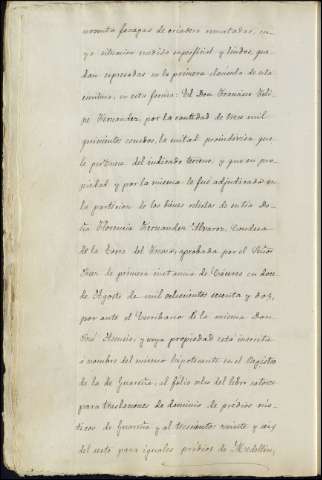 noventa fanegas de criadero mentadas, cu-
ya situacion medida superficial y lindes, que-
dan expresadas en la primera clausula de esta
escritura, en esta forma: El Don Francisco Feli-
pe Fernandez, por la cantidad de tres mil
quinientos escudos, la mitad proindivisa que
le pertenece del indicado terreno, y que en pro-
piedad y por la misma le fué adjudicada en
la particion de los bienes relictos de su tia Do-
ña Florencia Fernandez Alvarez, Condesa
de la Torre del Fresno, aprobada por el Señor
Juez de primera instancia de Cáceres en doce
de Agosto de mil ochocientos sesenta y dos,
por ante el Escribano de la misma Don
José Asensio, y cuya propiedad está inscrita
á nombre del mismo hipotecante en el Registro
de la de Guareña, al folio ocho del libro catorce
para traslaciones de dominio de prédios rús-
ticos de Guareña y al trescientos veinte y seis
del sesto para iguales prédios de Medellin,